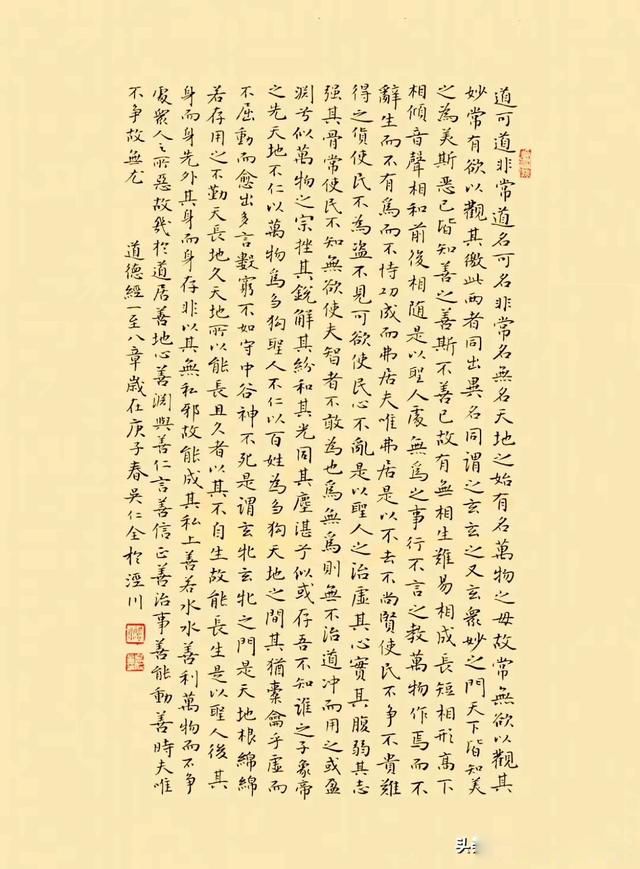 道可道非常道名可名非常名無名天地之始有名萬物之母故常無欲以觀其
妙常有欲以觀其徼此两者同出異名同謂之玄玄之又玄衆妙之門天下皆知美
之為美斯惡已皆知善之善斯不善已故有無相生難易相成長短相形髙下
相傾音聲相和前後相隨是以聖人處無為之事行不言之教萬物作焉而不
辭生而不有為而不恃功成而弗居夫唯弗居是以不去不尚賢使民不争不貴難
得之貨使民不為盗不見可欲使民心不亂是以聖人之治虚其心實其腹弱其志
强其骨常使民不知無欲使夫智者不敢為也為無為則無不治道冲而用之或盈
渊兮似萬物之宗挫其銳解其紛和其光同其塵湛兮似或存吾不知誰之子象帝
之先天地不仁以萬物為刍狗聖人不仁以百姓為刍狗天地之間其猶橐龠乎虚而
不屈動而愈出多言數窮不如守中谷神不死是謂玄牝玄牝之門是天地根綿綿
若存用之不勤天長地久天地所以能長且久者以其不自生故能長生是以聖人後其
身而身先外其身而身存非以其無私邪故能成其私上善若水水善利萬物而不争
處衆人之所惡故幾於道居善地心善渊與善仁言善信正善治事善能動善時夫唯
不争故無尤
道德經一至八章歳在庚子春吴仁全於涇川
头